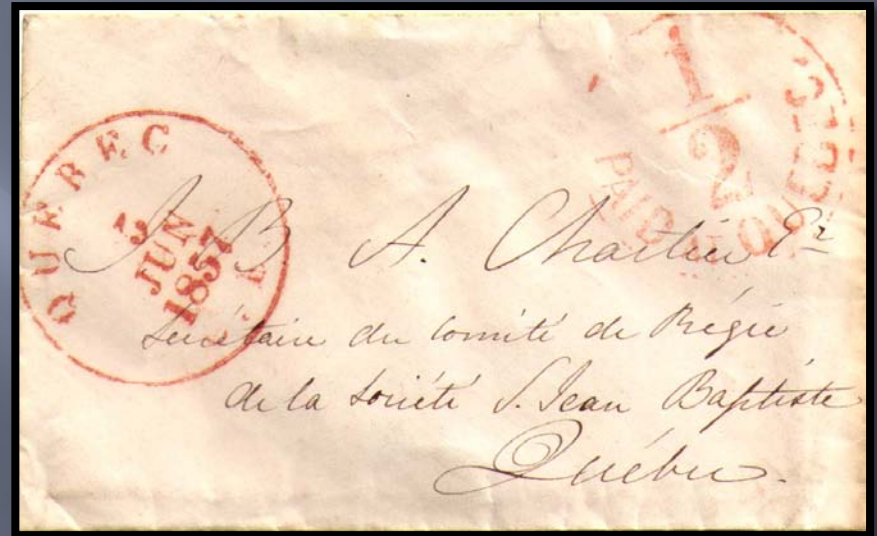 QUEBEC
13
JUN
1857
1/2
PAID QUEBEC
J B A. Chartier Er
Secrétaire du Comité de Régie
de la Société S. Jean Baptiste
Québec.